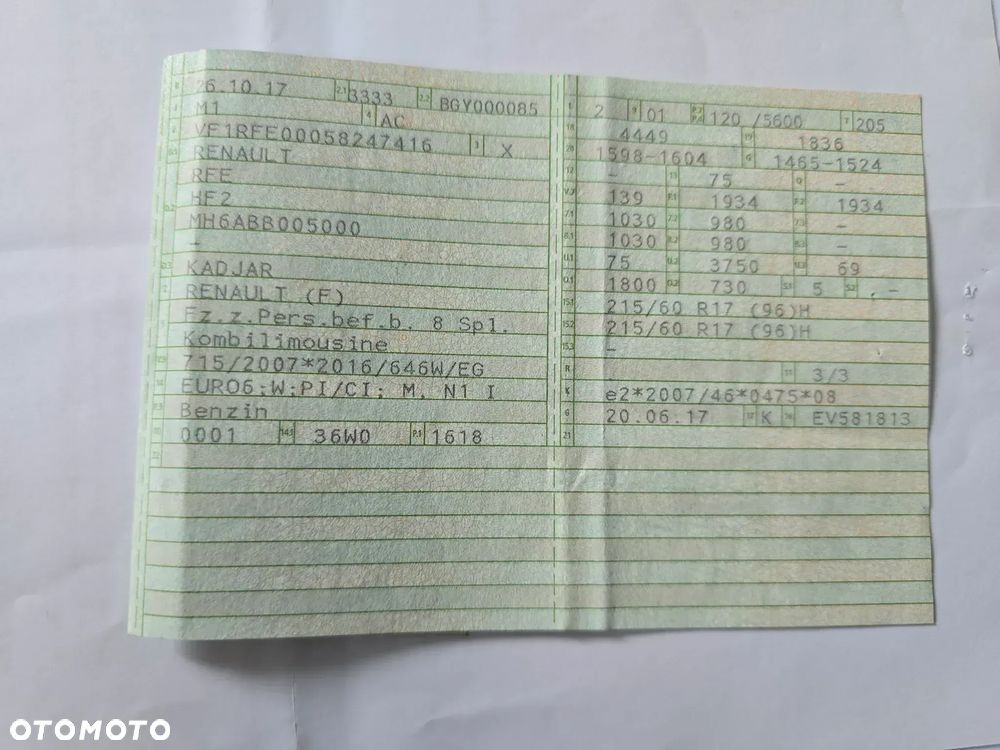 26.10.17 2.1 3333 2.2 BGY000085
M1 4 AC
VF1RFE00058247416 3 X
RENAULT
RFE
HF2
MH6ABB005000
–
KADJAR
RENAULT (F)
Fz.z.Pers.bef.b. 8 Spl.
Kombilimousine
715/2007*2016/646W/EG
EURO6;W;PI/CI; M, N1 I
Benzin
0001 14.1 36W0 P.1 1618
2 9 01 120 /5600 T 205
18 4449 19 1836
20 1598-1604 G 1465-1524
12 – 13 75 Q –
V.7 139 F.1 1934 F.2 1934
7.1 1030 7.2 980 7.3 –
8.1 1030 8.2 980 8.3 –
U.1 75 U.2 3750 U.3 69
O.1 1800 O.2 730 S.1 5 S.2 –
15.1 215/60 R17 (96)H
15.2 215/60 R17 (96)H
15.3 –
R 11 3/3
K e2*2007/46*0475*08
6 20.06.17 17 K 16 EV581813
21
OTOMOTO